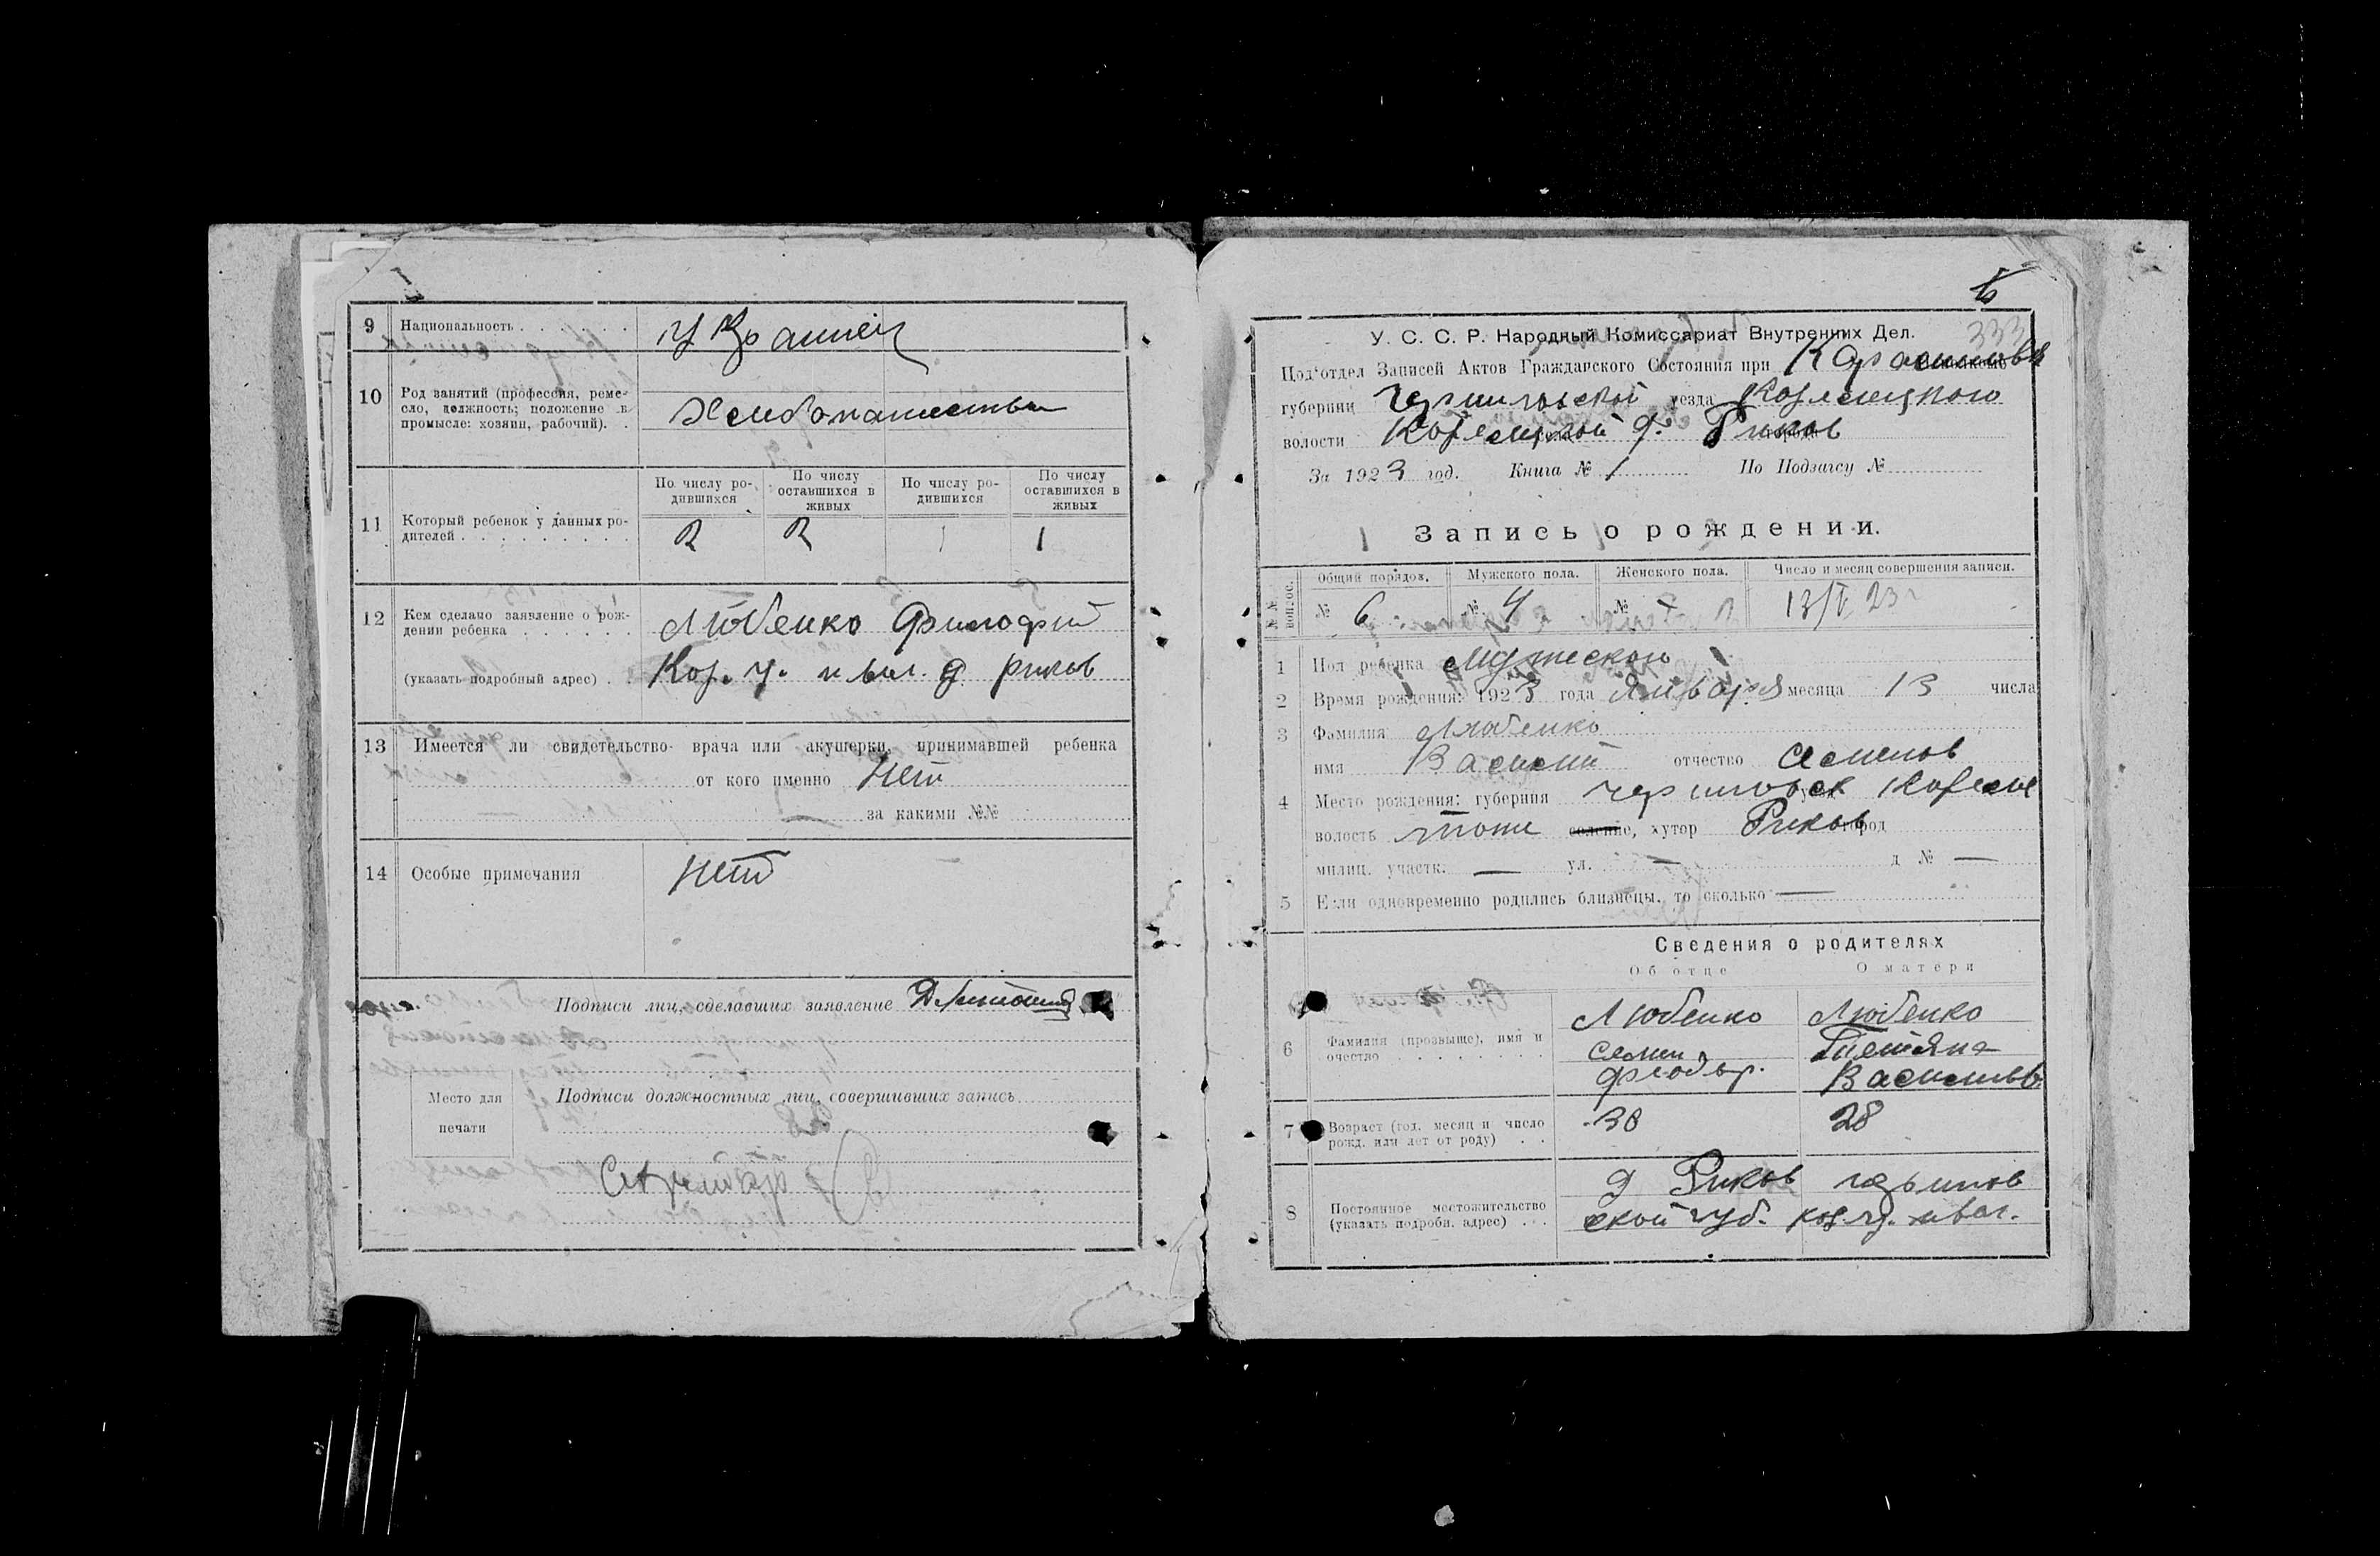 9 Национальность . . . . . . Украинец
10 Род занятий (профессия, реме-
сло, должность; положение в
промысле: хозяин, рабочий). . Хлебопашество
По числу ро-
дившихся
По числу
оставшихся в
живых
По числу ро-
дившихся
По числу
оставшихся в
живых
11 Который ребенок у данных ро-
дителей . . . . . . . . . 2 2 1 1
12 Кем сделано заявление о рож-
дении ребенка . . . . . . Любенко
(указать подробный адрес) . . Коз. у. и вол. д. Риков
13 Имеется ли свидетельство врача или акушерки, принимавшей ребенка
от кого именно Нет
— за какими №№
14 Особые примечания Нет
Подписи лиц, сделавших заявление
Подписи должностных лиц, совершивших запись
Место для
печати
Секретарь
333
У. С. С. Р. Народный Комиссариат Внутренних Дел.
Под'отдел Записей Актов Гражданского Состояния при
губернии Черниговской уезда Козелецкого
волости Козелецкой д. Риков
За 1923 год. Книга № 1 По Подзагсу №
Запись о рождении.
№№ вопрос.
Общий порядок. Мужского пола. Женского пола. Число и месяц совершения записи.
№ 6 № 4 № 13/I 23г
1 Пол ребенка Мужской
2 Время рождения: 1923 года Января месяца 13 числа
3 Фамилия Любенко
имя Василий отчество Семенов
4 Место рождения: губерния Черниговск Козелец
волость тоже селение, хутор Риков город
милиц. участк. — ул. — д № —
5 Если одновременно родились близнецы, то сколько —
Сведения о родителях
Об отце О матери
6 Фамилия (прозвище), имя и
очество . . . . . . . .
Любенко Любенко
Семен Татяна
Феодор. Васильев
7 Возраст (год, месяц и число
рожд. или лет от роду) . . 38 28
8 Постоянное местожительство
(указать подробн. адрес) . . .
д Риков Чернигов
ской губ. коз. у. и вол.